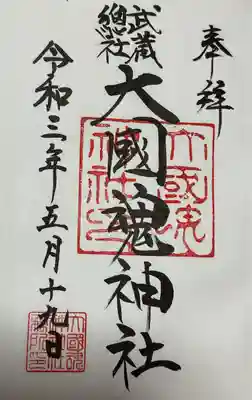 奉拝
武蔵
總社
大國魂神社
令和三年五月十九日
大國魂
神社印